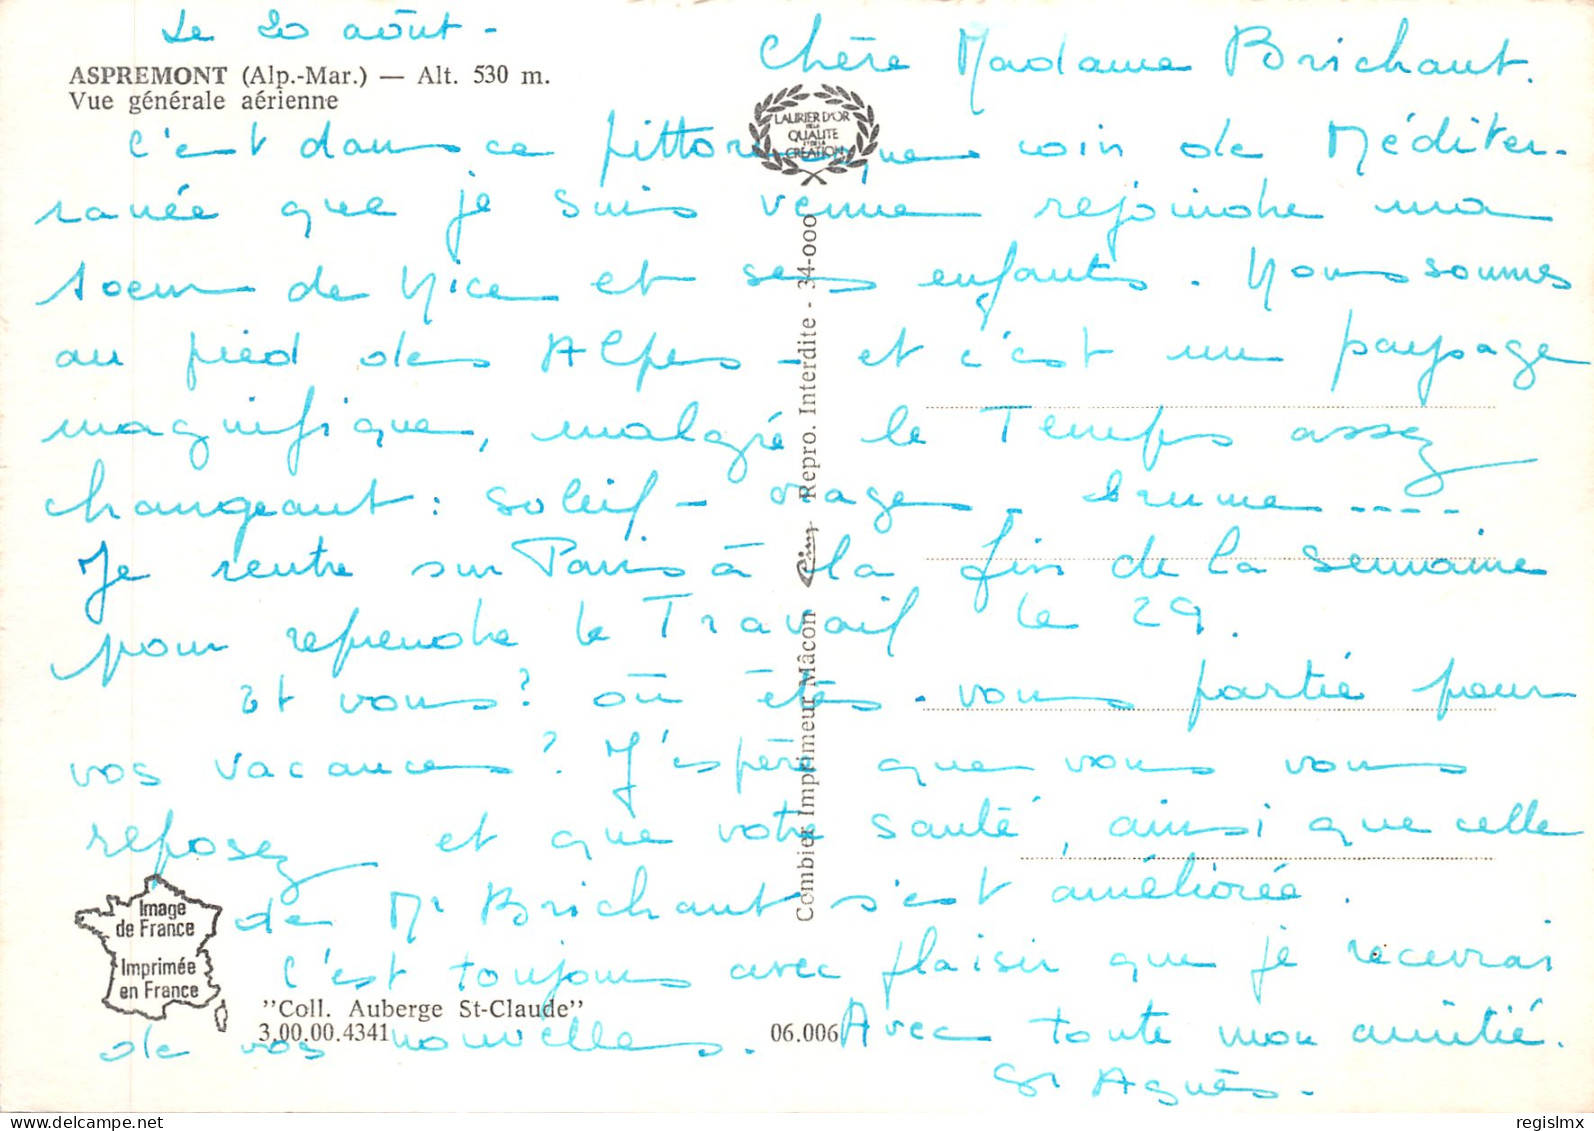 Le 20 août -
Chère Madame Brichaut.
ASPREMONT (Alp.-Mar.) — Alt. 530 m.
Vue générale aérienne
LAURIER D'OR
DE LA
QUALITE
ET DE LA
CREATION
C'est dans ce pittoresque coin de Méditer-
ranée que je suis venue rejoindre ma
soeur de Nice et ses enfants. Nous sommes
au pied des Alpes - et c'est un paysage
magnifique, malgré le Temps assez
changeant : soleil - orages - brume ----
Je rentre sur Paris à la fin de la semaine
pour reprendre le Travail le 29.
Et vous ? où êtes-vous partie pour
vos vacances ? J'espère que vous vous
reposez et que votre santé, ainsi que celle
de Mr Brichaut s'est améliorée.
C'est toujours avec plaisir que je recevrai
de vos nouvelles. Avec toute mon amitié.
Sr Agnès.
Image
de France
Imprimée
en France
"Coll. Auberge St-Claude"
3.00.00.4341
06.006
Combier Imprimeur Mâcon Cim Repro. Interdite - 34-000
regislmx